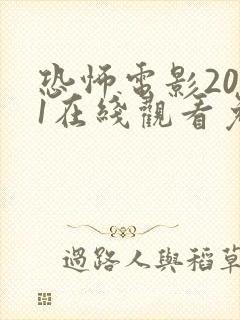 恐怖電影20
1在綫觀看免
過路人與稻草